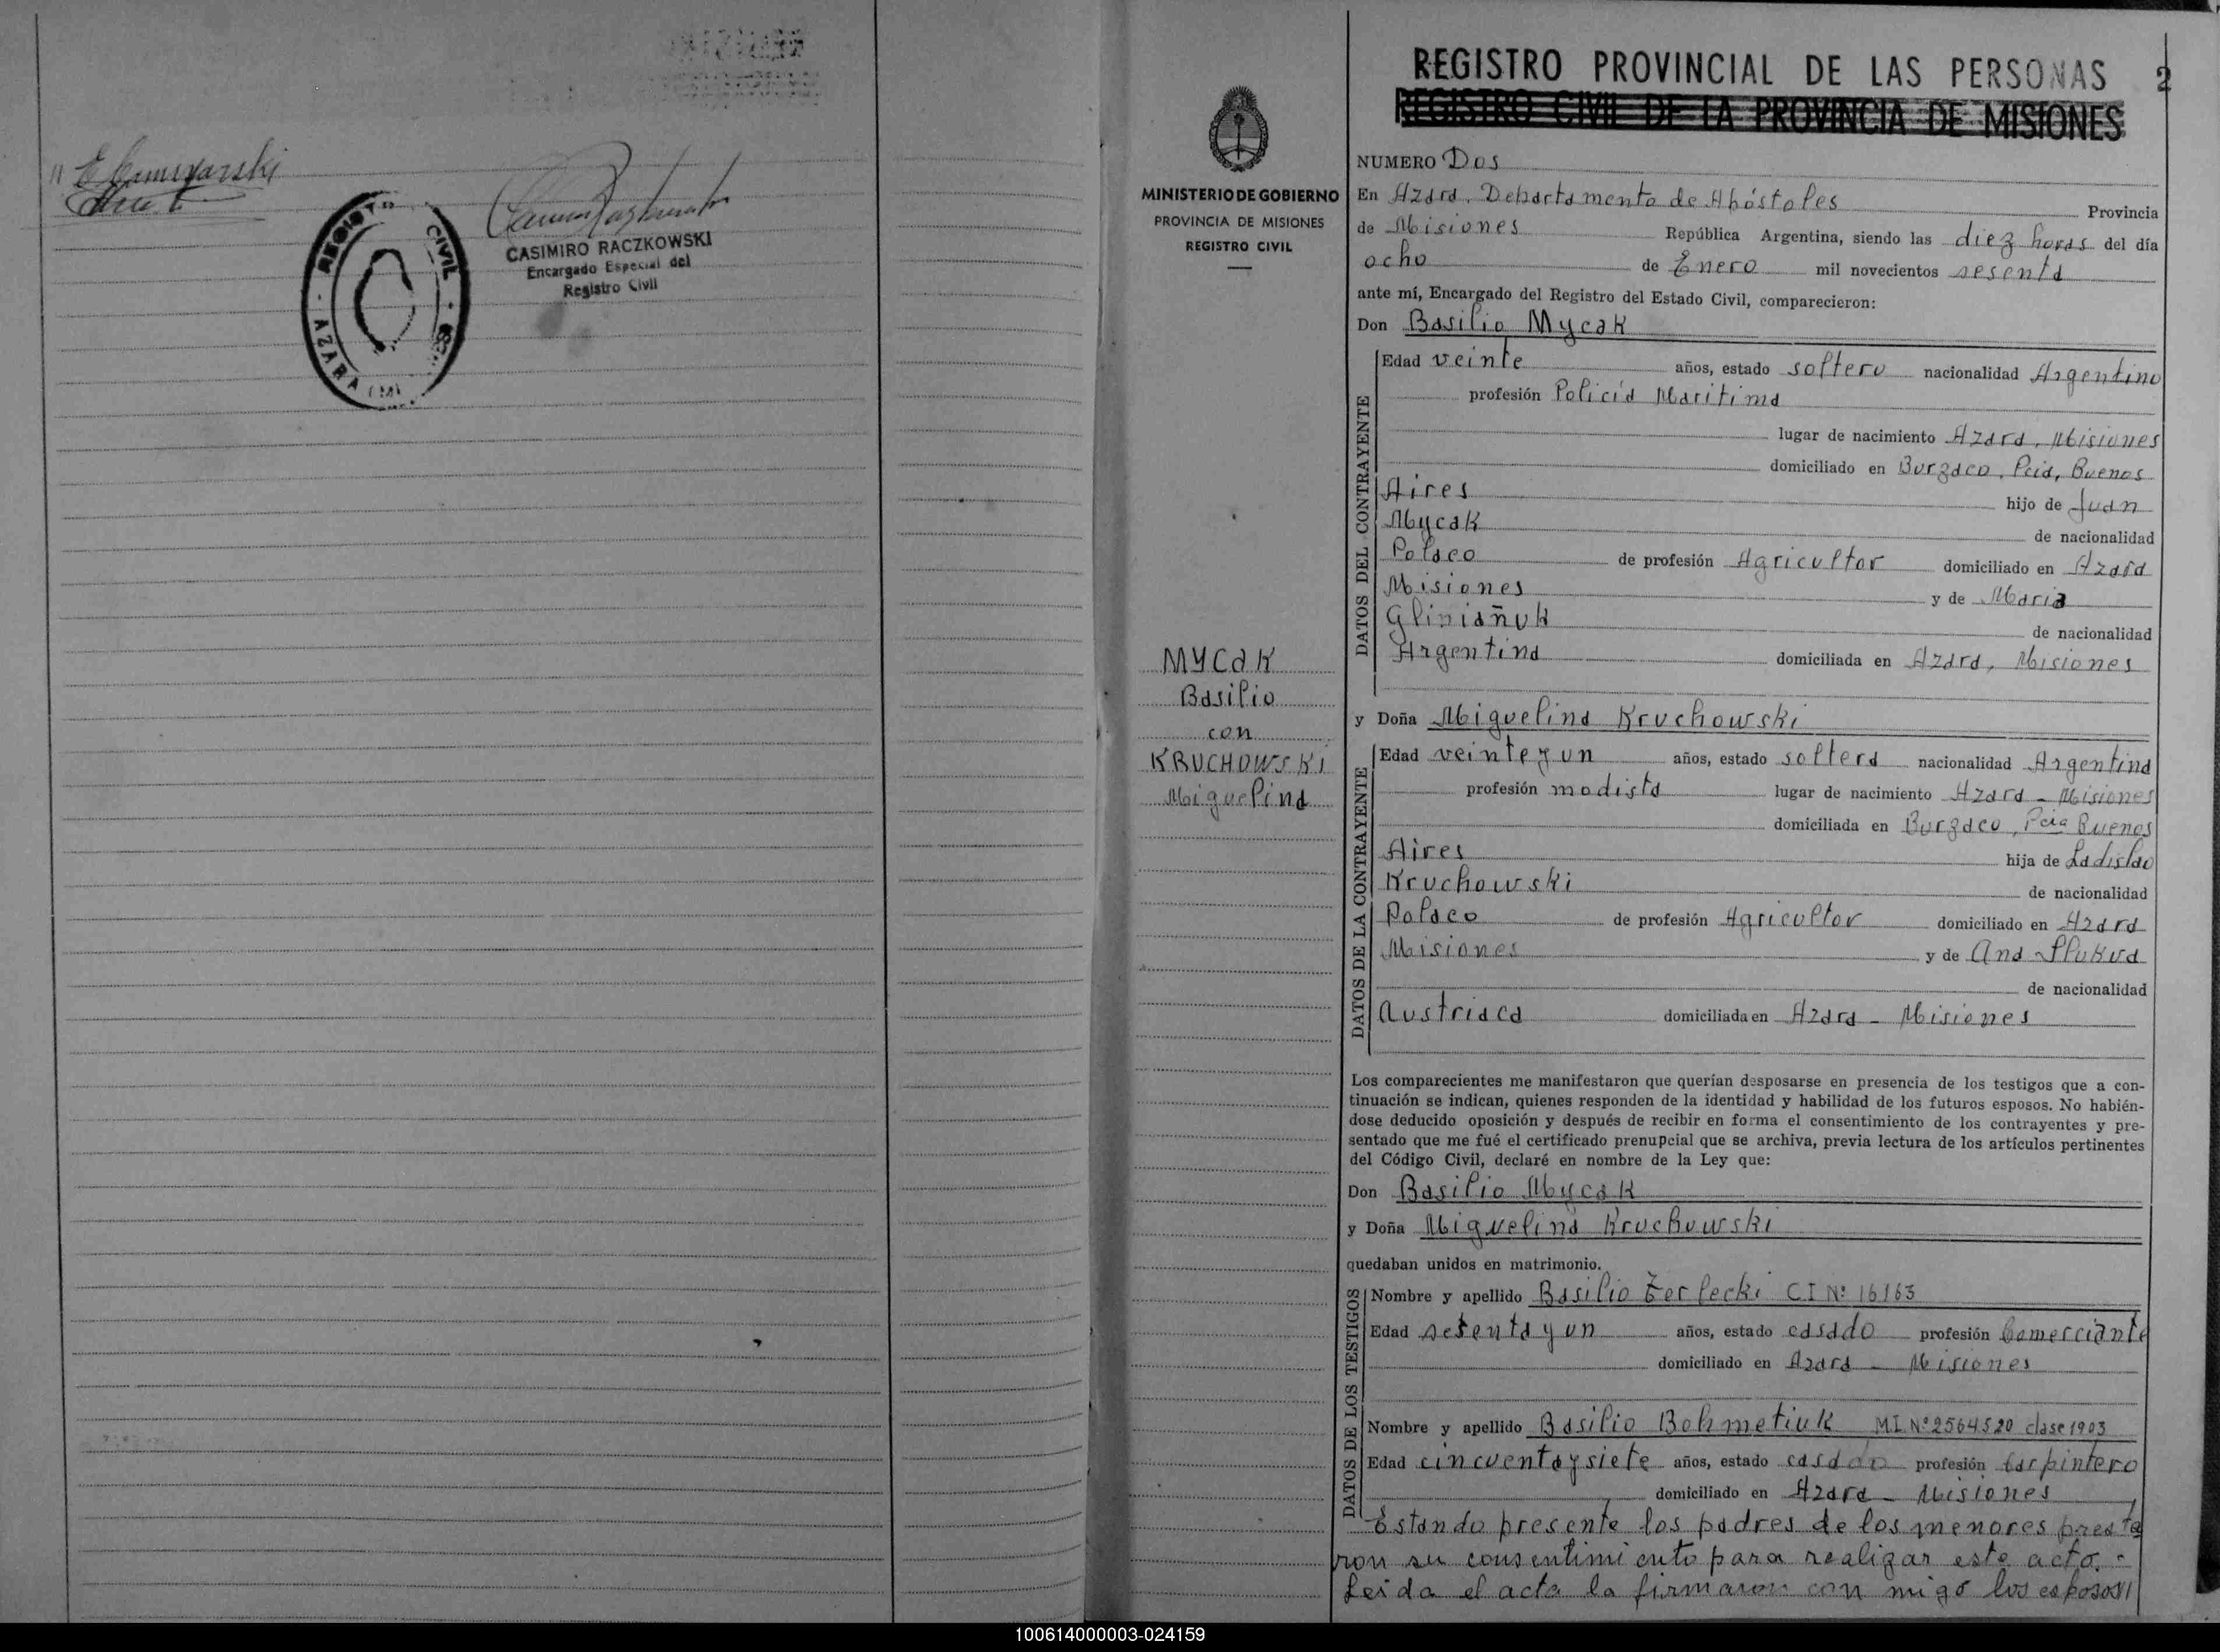 REGISTRO CIVIL
AZARA (M)
CASIMIRO RACZKOWSKI
Encargado Especial del
Registro Civil
MINISTERIO DE GOBIERNO
PROVINCIA DE MISIONES
REGISTRO CIVIL
MYCAK
Basilio
con
KRUCHOWSKI
Miguelina
REGISTRO PROVINCIAL DE LAS PERSONAS 2
REGISTRO CIVIL DE LA PROVINCIA DE MISIONES
NUMERO Dos
En Azara, Departamento de Apóstoles Provincia
de Misiones República Argentina, siendo las diez horas del día
ocho de Enero mil novecientos sesenta
ante mí, Encargado del Registro del Estado Civil, comparecieron:
Don Basilio Mycak
DATOS DEL CONTRAYENTE
Edad veinte años, estado soltero nacionalidad Argentino
profesión Policía Maritima
lugar de nacimiento Azara, Misiones
domiciliado en Burzaco, Pcia, Buenos
Aires hijo de Juan
Mycak de nacionalidad
Polaco de profesión Agricultor domiciliado en Azara
Misiones y de Maria
Gliniañuk de nacionalidad
Argentina domiciliada en Azara, Misiones
y Doña Miguelina Kruchowski
DATOS DE LA CONTRAYENTE
Edad veinte y un años, estado soltera nacionalidad Argentina
profesión modista lugar de nacimiento Azara - Misiones
domiciliada en Burzaco, Pcia Buenos
Aires hija de Ladislao
Kruchowski de nacionalidad
Polaco de profesión Agricultor domiciliado en Azara
Misiones y de Ana
de nacionalidad
Austriaca domiciliada en Azara - Misiones
Los comparecientes me manifestaron que querían desposarse en presencia de los testigos que a con-
tinuación se indican, quienes responden de la identidad y habilidad de los futuros esposos. No habién-
dose deducido oposición y después de recibir en forma el consentimiento de los contrayentes y pre-
sentado que me fué el certificado prenupcial que se archiva, previa lectura de los artículos pertinentes
del Código Civil, declaré en nombre de la Ley que:
Don Basilio Mycak
y Doña Miguelina Kruchowski
quedaban unidos en matrimonio.
DATOS DE LOS TESTIGOS
Nombre y apellido Basilio Zerlecki CI Nº 16163
Edad setenta y un años, estado casado profesión Comerciante
domiciliado en Azara - Misiones
Nombre y apellido Basilio Bohmetiuk MI. Nº 2564520 clase 1903
Edad cincuenta y siete años, estado casado profesión Carpintero
domiciliado en Azara - Misiones
Estando presente los padres de los menores presta
ron su consentimiento para realizar este acto.-
Leida el acta la firmaron con migo los esposos//
100614000003-024159